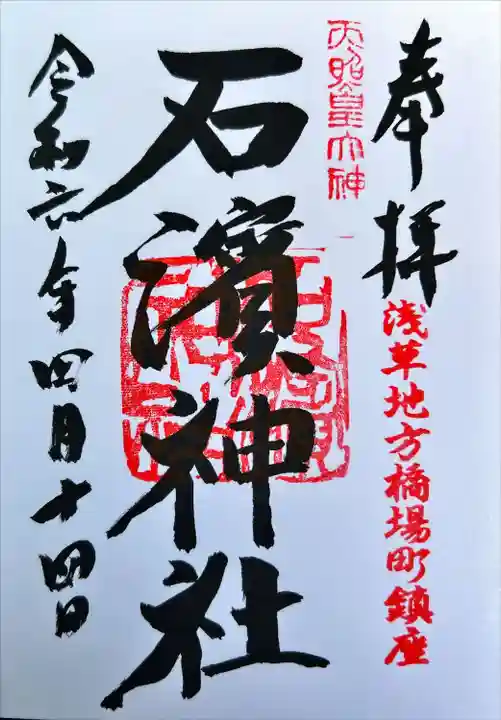 奉拝
浅草地方橋場町鎮座
天照皇大神
石濱神社
令和六年四月十四日